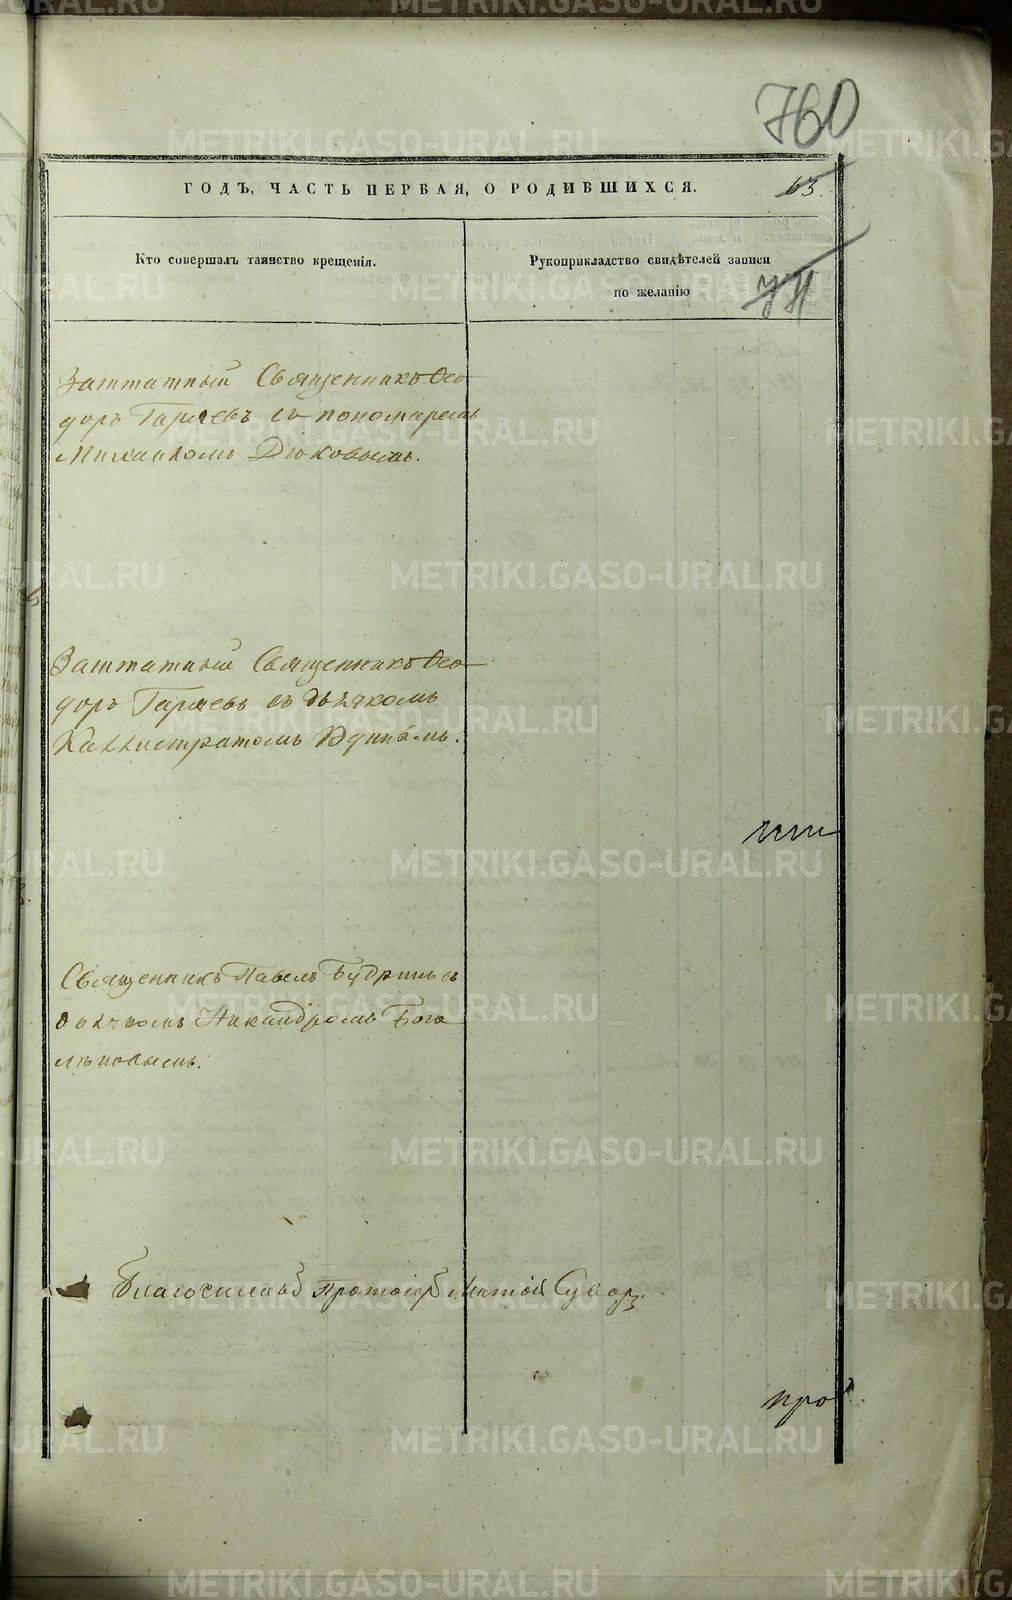 760
ГОДЪ, ЧАСТЬ ПЕРВАЯ, О РОДИВШИХСЯ.
63.
Кто совершалъ таинство крещенія.
Рукоприкладство свидѣтелей записи
по желанію
Заштатный Священникъ Ѳео
доръ Гаряевъ съ пономаремъ
Михаиломъ Дюковымъ.
Заштатный Священникъ Ѳео
доръ Гаряевъ съ дьячкомъ
Каллистратомъ
Священникъ Павелъ Будринъ съ
дьячкомъ Никандромъ Бого
лѣповымъ.
Протоіер
про
METRIKI.GASO-URAL.RU